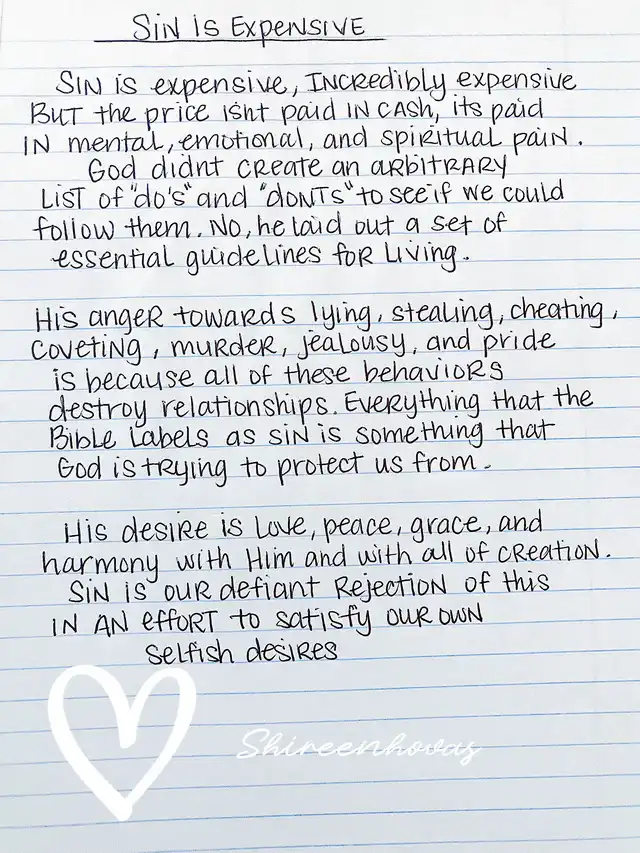 SIN IS EXPENSIVE
SIN is expensive, INCREDIBLY expensive
BUT the price isnt paid IN CASH, its paid
IN mental, emotional, and spiritual pain.
God didnt create an arbitrary
List of "do's" and "donts" to see if we could
follow them. No, he laid out a set of
essential guidelines for living.
His anger towards lying, stealing, cheating,
coveting, murder, jealousy, and pride
is because all of these behaviors
destroy relationships. Everything that the
Bible labels as sin is something that
God is trying to protect us from.
His desire is love, peace, grace, and
harmony with Him and with all of creation.
Sin is our defiant rejection of this
in an effort to satisfy our own
selfish desires
Shireenhovas